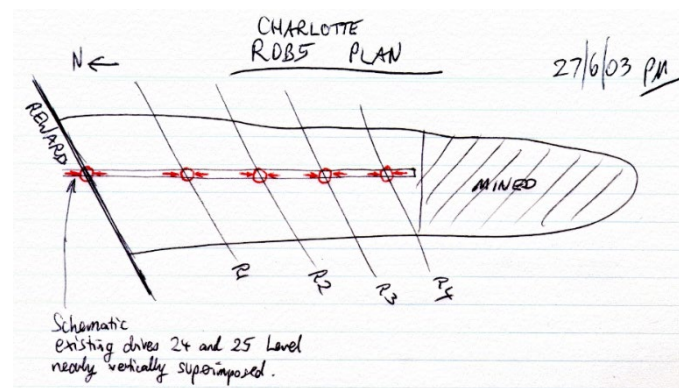 CHARLOTTE
ROB5 PLAN
27/6/03 PM
N
REWARD
MINED
R1
R2
R3
R4
Schematic
existing drives 24 and 25 Level
nearly vertically superimposed.